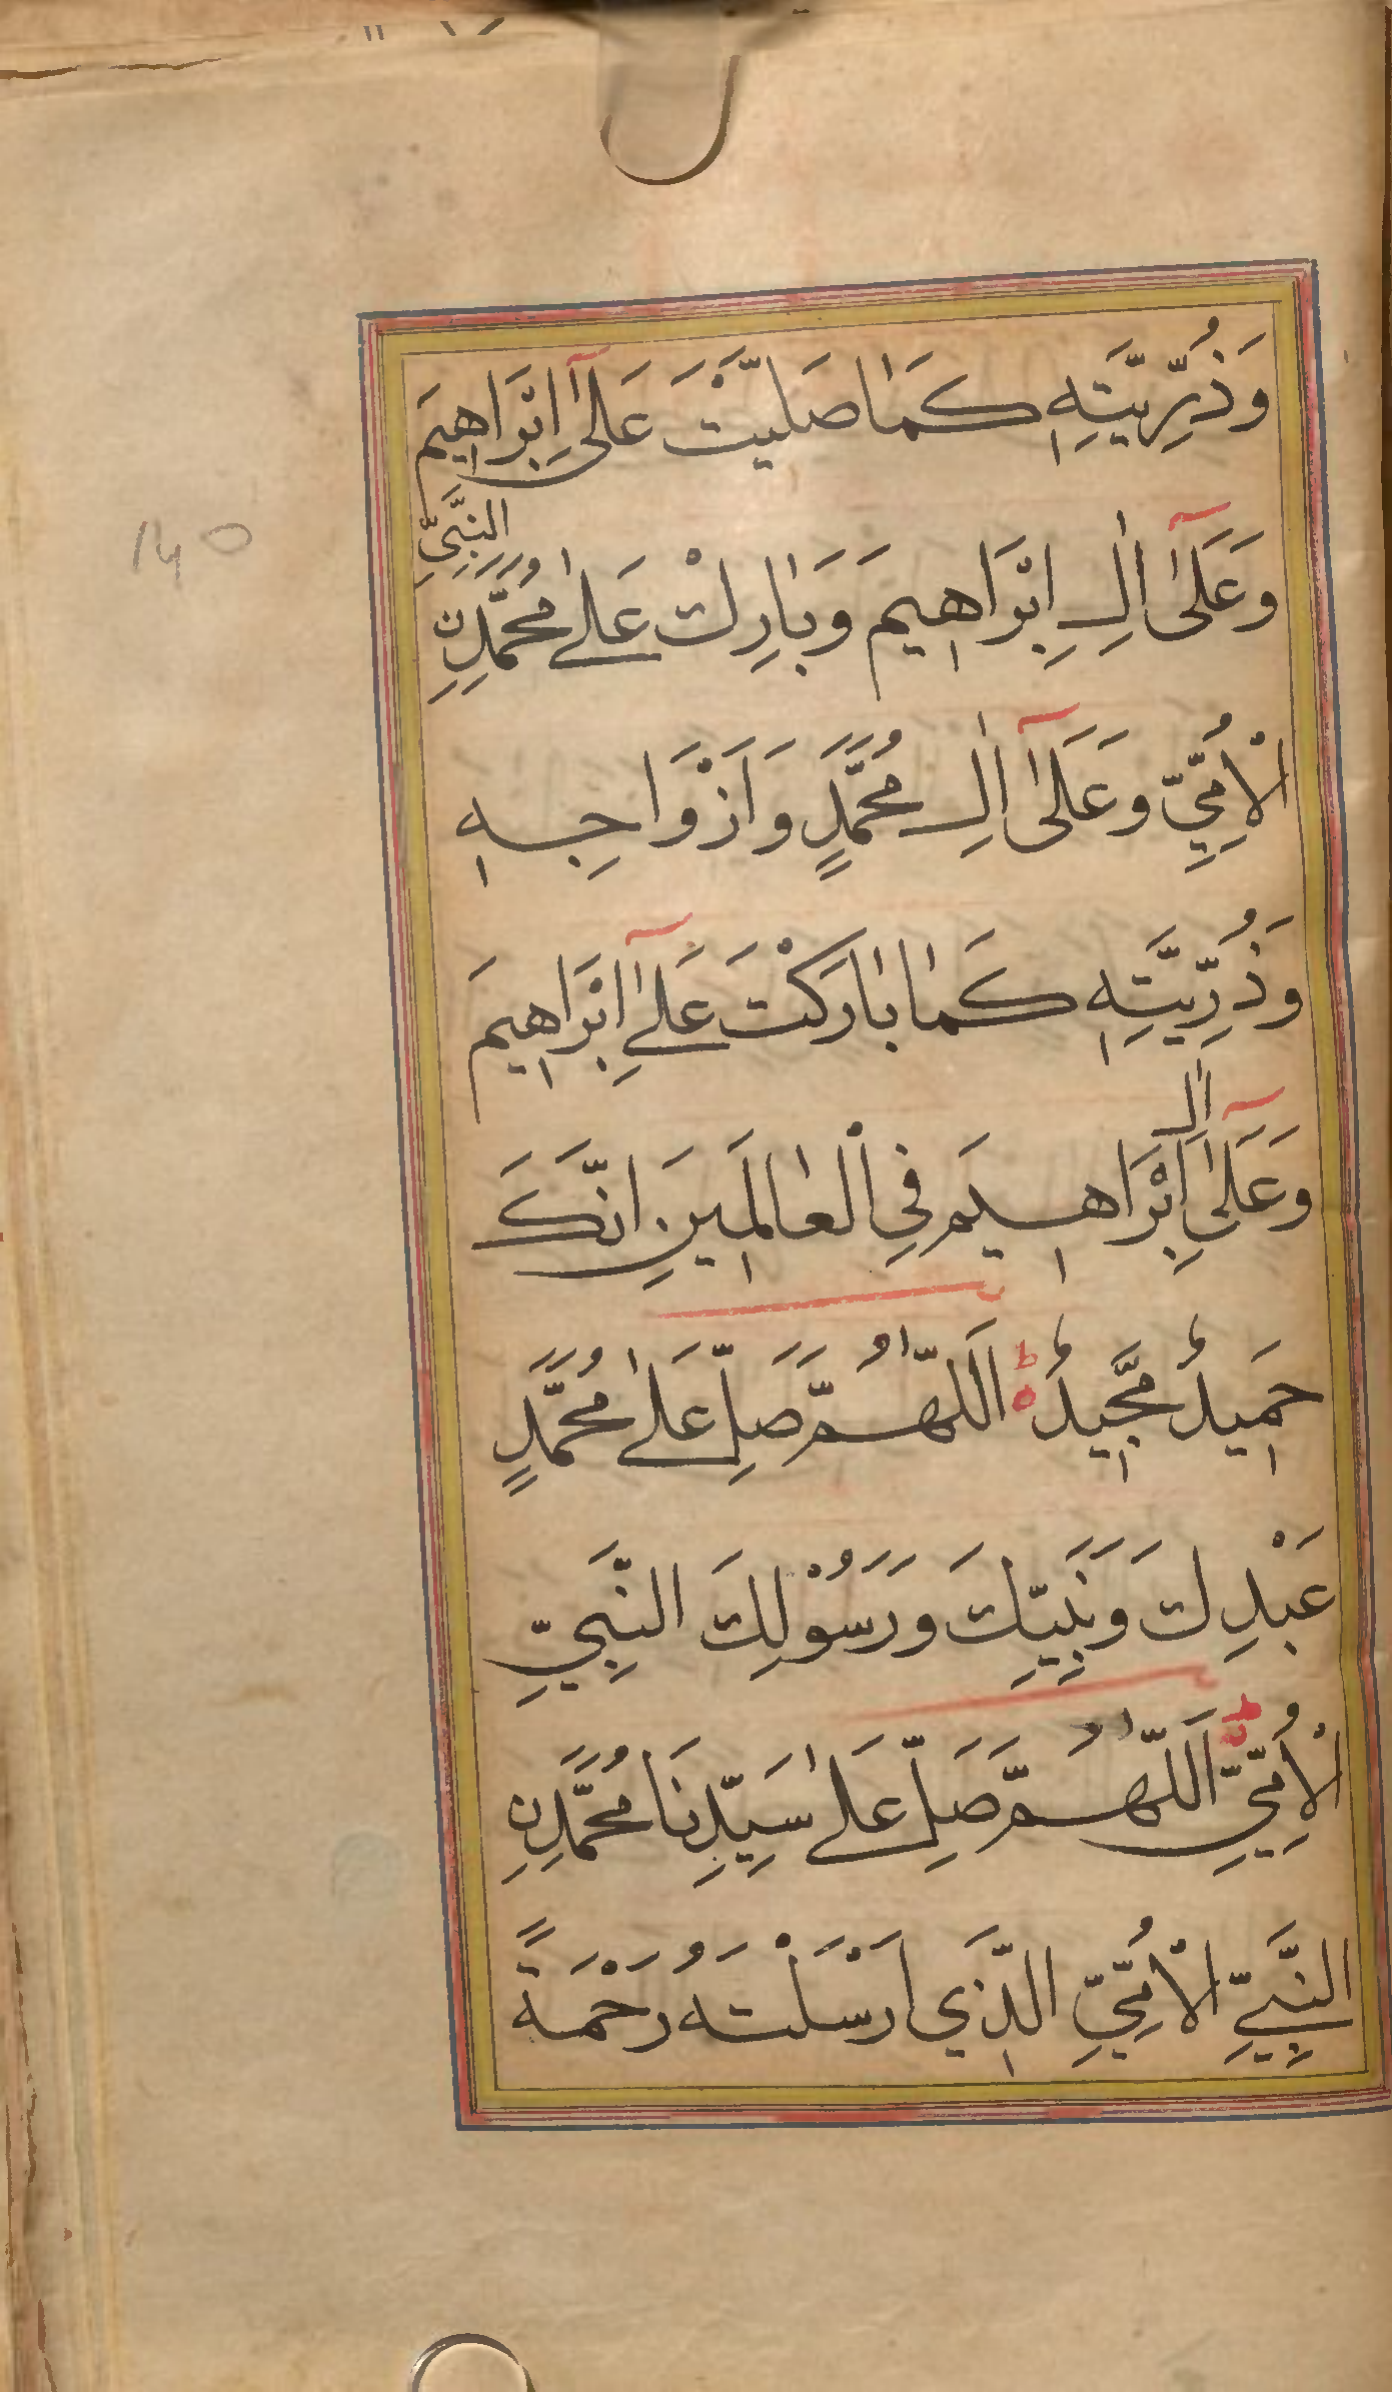 وَذُرِّيَّتِهٖ كَمَا صَلَّيْتَ عَلٰٓى اِبْرَاهِيمَ
النَّبِيِّ
وَعَلٰٓى اٰلِ اِبْرَاهِيمَ وَبَارِكْ عَلٰى مُحَمَّدِنِ
الْاُمِّيِّ وَعَلٰٓى اٰلِ مُحَمَّدٍ وَاَزْوَاجِهٖ
وَذُرِّيَّتِهٖ كَمَا بَارَكْتَ عَلٰٓى اِبْرَاهِيمَ
اٰلِ
وَعَلٰٓى اِبْرَاهِيمَ فِي الْعَالَمِينَ اِنَّكَ
حَمِيدٌ مَّجِيدٌ ط اَللّٰهُمَّ صَلِّ عَلٰى مُحَمَّدٍ
عَبْدِكَ وَنَبِيِّكَ وَرَسُوْلِكَ النَّبِيِّ
الْاُمِّيِّ ط اَللّٰهُمَّ صَلِّ عَلٰى سَيِّدِنَا مُحَمَّدِنِ
النَّبِيِّ الْاُمِّيِّ الَّذِي اَرْسَلْتَهُ رَحْمَةً